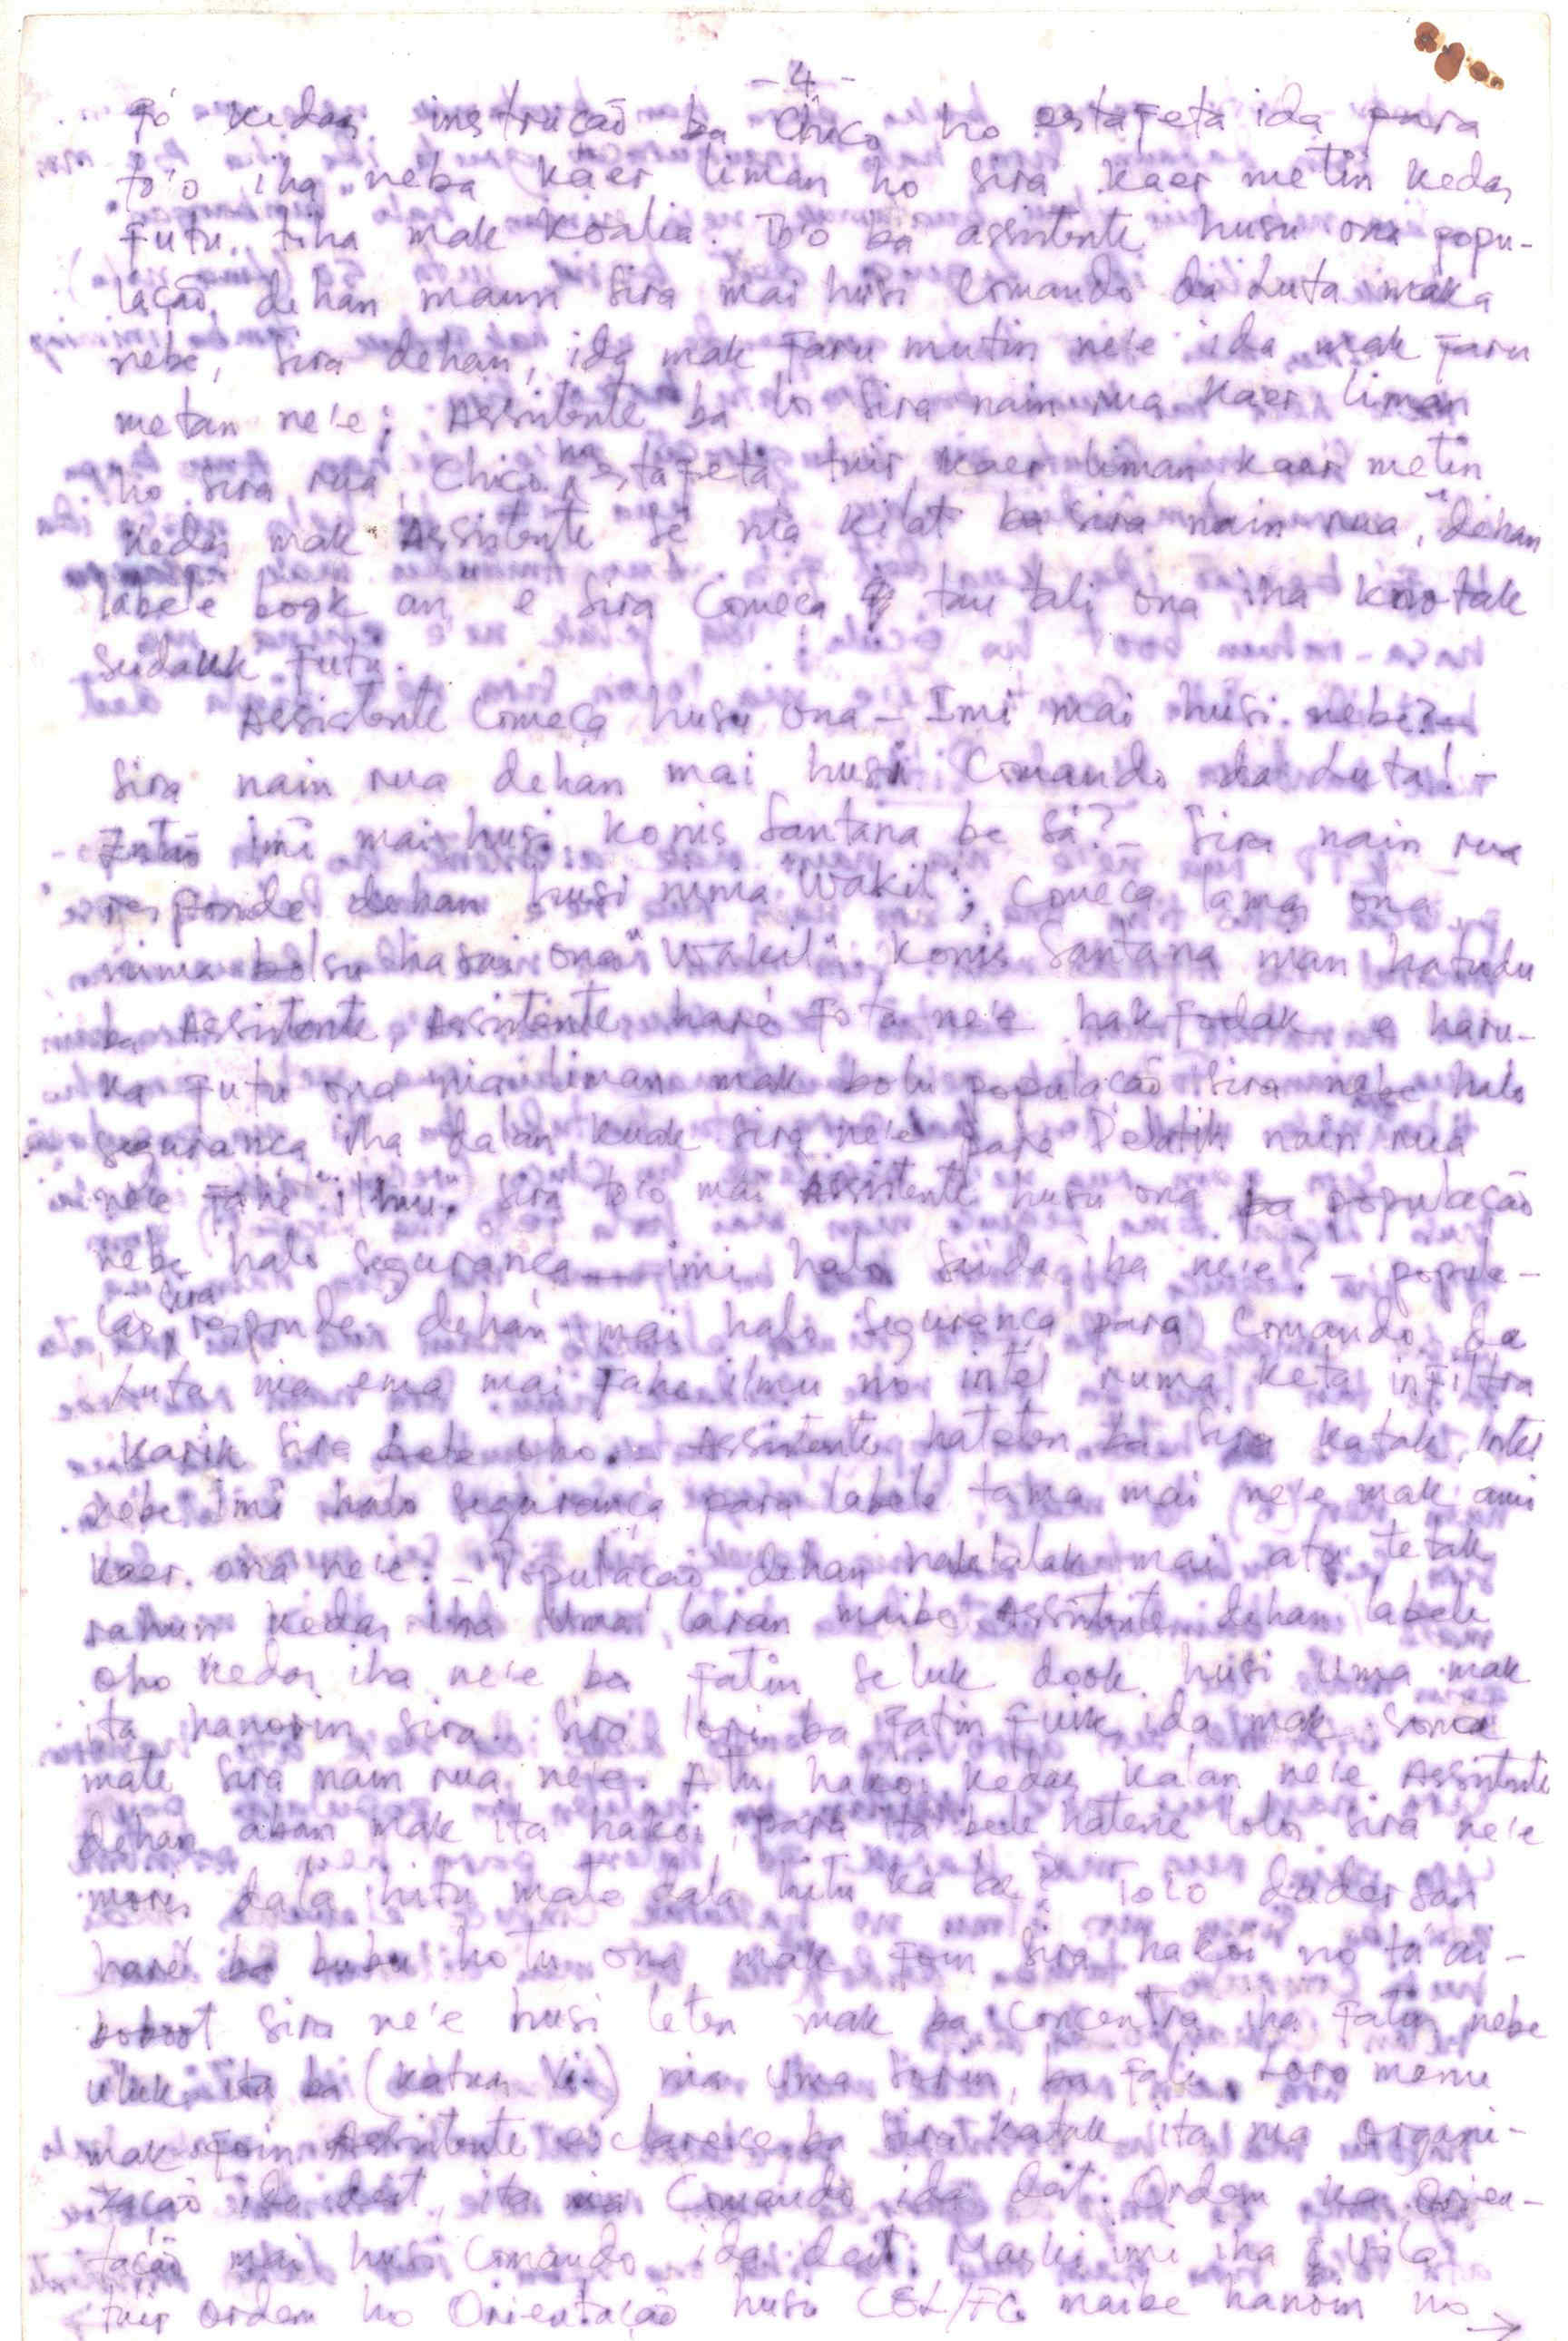 - 4 -
Fó kedas instrução ba "Chico ho estafeta ida para
to'o iha neba kaer liman ho sira, kaer metin kedas
futu tiha mak koalia. To'o ba assistente husu ona popu-
lação, dehan maun sira mai husi Comando da Luta maka
nebe, sira dehan, ida mak faru mutin ne'e ida mak faru
metan ne'e; Assistente ba lo sira nain rua kaer liman
ho sira rua, Chico no estafeta tuir kaer liman kaer metin
kedas mak Assistente se nia kilat ba sira nain rua, "dehan
labele book an, e sira começa tau tali ona iha knotak
sudauk futu.
Assistente começa husu ona - Imi mai husi nebe? -
Sira nain rua dehan mai husi Comando da Luta! -
- Então imi mai husi Konis Santana be Sá? - Sira nain rua
responde dehan husi numa "Wakil"; começa lamas ona
numa bolsu hasai ona "Wakil" Konis Santana nian hatudu
ba Assistente, Assistente haré foto ne'e hakfodak e haru-
ka futu ona nia liman mak bolu população sira nebe halo
segurança iha dalan kuak sira ne'e para Delatik nain rua
ne'e fahe "ilmu". Sira to'o mai Assistente husu ona ba população
nebe halo segurança — imi halo saida iha ne'e? - popula-
ção sira responde dehan mai halo segurança para Comando da
Luta nia ema mai fahe ilmu no intel ruma keta infiltra
karik sira bele oho. - Assistente hateten ba sira katak, intel
nebe imi halo segurança para labele tama mai ne'e mak ami
kaer ona ne'e. - População dehan haklalak mai atu tetak
rahun kedas iha uma laran maibe Assistente dehan labele
oho kedas iha ne'e ba fatin seluk dook husi uma mak
ita hanorin sira. Sira lori ba fatin fuik ida mak sona
mate sira nain rua ne'e. Atu hakoi kedas kalan ne'e Assistente
dehan aban mak ita hakoi, para ita bele hatene lolos sira ne'e
moris dala hitu mate dala hitu ka be? To'o dadersan
haré ba bubu hotu ona mak foin sira hakoi no tá ai-
boboot sira ne'e husi leten mak ba concentra iha fatin nebe
uluk ita ba (katuas Vi) nia uma sorin, ba fali Loro monu
mak foin Assistente esclarece ba sira katak ita nia organi-
zação ida deit, ita nia Comando ida deit. Ordem ka Orien-
tação mai husi Comando ida deit. Maski imi iha Vila
tuir ordem ho Orientação husi CEL/FC maibe hanoin no →